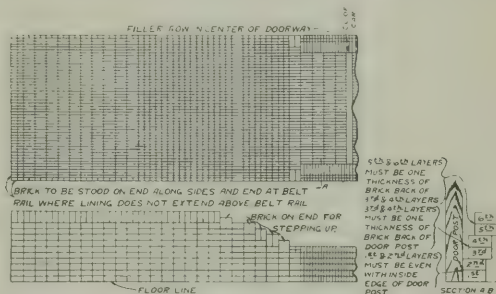 FILLER ROW IN CENTER OF DOORWAY
BRICK TO BE STOOD ON END ALONG SIDES AND END AT BELT
RAIL WHERE LINING DOES NOT EXTEND ABOVE BELT RAIL
BRICK ON END FOR
STEPPING UP
FLOOR LINE
LAYERS
MUST BE ONE
THICKNESS OF
BRICK BACK OF
3rd & 4th LAYERS
3rd & 4th LAYERS
MUST BE ONE
THICKNESS OF
BRICK BACK OF
DOOR POST
1st & 2nd LAYERS
MUST BE EVEN
WITH INSIDE
EDGE OF DOOR
POST
DOOR POST
6th
5th
4th
3rd
2nd
1st
SECTION A B